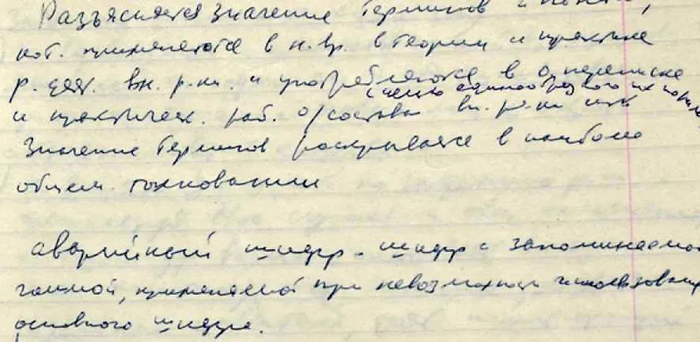 Разъясняется значение терминов и
кот. применяются в н. вр. в теории и практике
р. деят. вн. р-ки. и употребляются в о. переписке
(с целью единообразного их
и практическ. раб. о/состава вн. р-ки
Значение терминов раскрывается в наиболее
общем толковании
аварийный шифр - шифр с запоминаемой
гаммой, применяемой при невозможности использования
основного шифра.